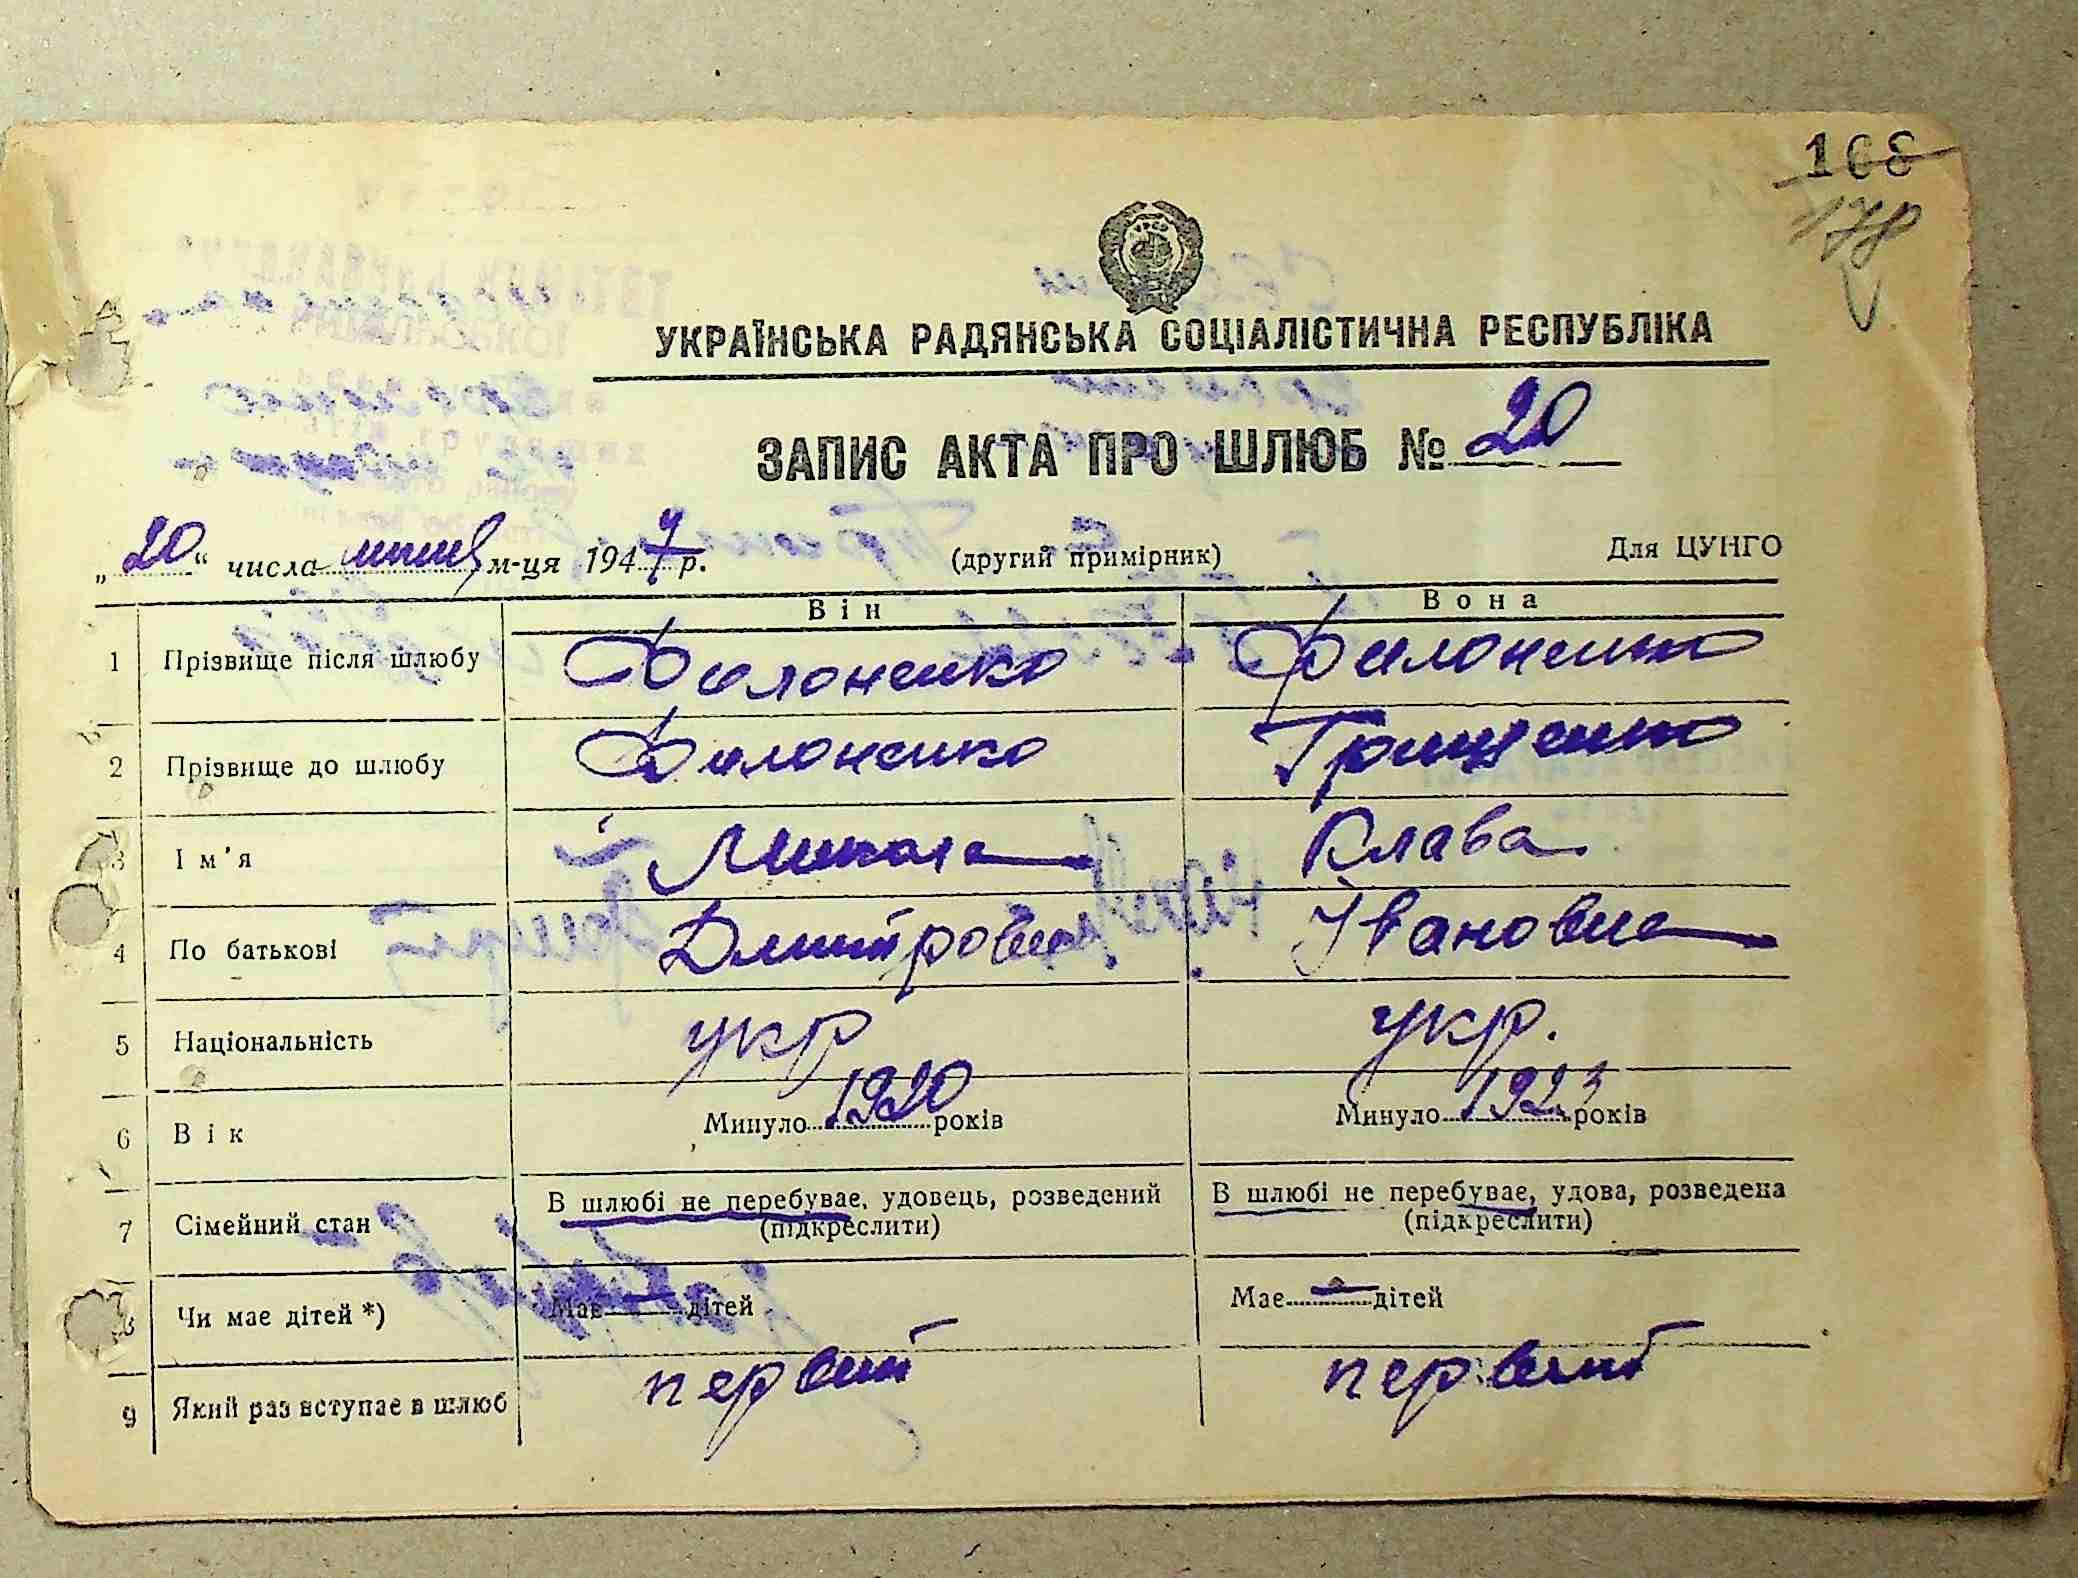 168
178
УКРАЇНСЬКА РАДЯНСЬКА СОЦІАЛІСТИЧНА РЕСПУБЛІКА
ЗАПИС АКТА ПРО ШЛЮБ № 20
„20“ числа м-ця 1947 р. (другий примірник) Для ЦУНГО
Він Вона
1 Прізвище після шлюбу Филоненко Филоненко
2 Прізвище до шлюбу Филоненко Грищенко
3 Ім'я Микола Клава
4 По батькові Дмитрович Івановна
5 Національність укр укр.
6 Вік Минуло 1920 років Минуло 1923 років
7 Сімейний стан В шлюбі не перебуває, удовець, розведений В шлюбі не перебуває, удова, розведена
(підкреслити) (підкреслити)
8 Чи має дітей *) Має — дітей Має — дітей
9 Який раз вступає в шлюб первий первый